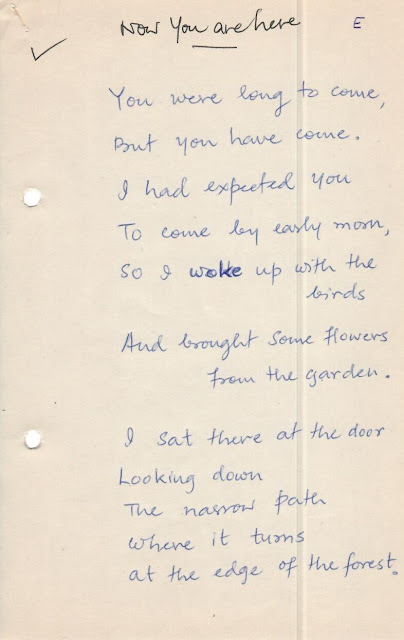 Now You are here E
You were long to come,
But you have come.
I had expected you
To come by early morn,
So I woke up with the
birds
And brought some flowers
from the garden.
I sat there at the door
Looking down
The narrow path
where it turns
at the edge of the forest.